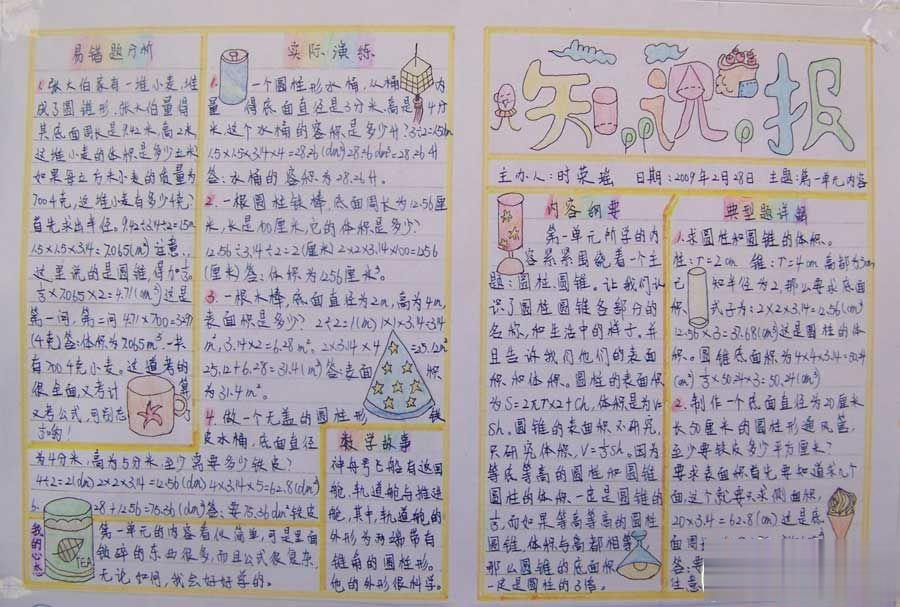 易错题分析
1.张大伯家有一堆小麦,堆
成了圆锥形,张大伯量得
其底面周长是9.42米,高2米,
这堆小麦的体积是多少立米?
如果每立方米小麦的质量为
700千克,这堆小麦有多少千克?
首先求出半径。9.42÷3.14÷2=1.5m
1.5×1.5×3.14=7.065(m²)注意:
这里说的是圆锥,得加⅓。
⅓×7.065×2=4.71(m³)这是
第一问,第二问4.71×700=3297
(千克)答:体积为7.065m³一共
有700千克小麦。这道考的
很全面,又考计算
又考公式,可别忘
⅓哟!
实际演练
1.一个圆柱形水桶,从桶内
量得底面直径是3分米,高是4分
米,这个水桶的容积是多少升?3÷2=1.5dm
1.5×1.5×3.14×4=28.26(dm³)28.26dm³=28.26升
答:水桶的容积为28.26升。
2.一根圆柱铁棒,底面周长为12.56厘
米,长是100厘米,它的体积是多少?
12.56÷3.14÷2=2(厘米)2×2×3.14×100=1256
(厘米)答:体积为1256厘米³。
3.一根木棒,底面直径为2m,高为4m,
表面积是多少?2÷2=1(m)1×1×3.14=3.14
m²,3.14×2=6.28m²。2×3.14×4=25.12m²
25.12+6.28=31.4(m²)答:表面积
为31.4m²。
4.做一个无盖的圆柱形铁
皮水桶,底面直径
为4分米,高为5分米,至少需要多少铁皮?
4÷2=2(dm)2×2×3.14=12.56(dm²)4×3.14×5=62.8(dm²)
6 2.8+12.56=75.36(dm²)答:要75.36dm²铁皮
我的心态
第一单元的内容看似简单,可是里面
琐碎的东西很多,而且公式很复杂,
无论如何,我会好好学的。
TEA
数学故事
神舟号飞船有返回
舱,轨道舱与推进
舱,其中,轨道舱的
外形为两端带有
锥角的圆柱形。
他的外形很科学。
知识报
主办人:时英瑶 日期:2009年2月28日 主题:第一单元内容
内容纲要
第一单元所学的内
容紧紧围绕着一个主
题:圆柱、圆锥。让我们认
识了圆柱圆锥各部分的
名称,和生活中的样子。并
且告诉我们他们的表面
积和体积。圆柱的表面积
为S=2πr×2+Ch,体积是为V=
Sh。圆锥的表面积不研究,
只研究体积,V=⅓Sh。因为
等底等高的圆柱和圆锥
圆柱的体积一定是圆锥的
⅓,而如果等高等高的圆柱
圆锥,体积与高都相等,
那么圆锥的底面积
一定是圆柱的3倍。
典型题详解
1.求圆柱和圆锥的体积。
柱:r=2cm 锥:r=4cm 高都为3cm
已知半径为2,那么要求底面
积式子为:2×2×3.14=12.56(cm²)
12.56×3=37.68(cm³)这是圆柱的体
积。圆锥底面积为4×4×3.14=50.24
(cm²)⅓×50.24×3=50.24(cm³)
2.制作一个底面直径为20厘米
长50厘米的圆柱形通风管,
至少要铁皮多少平方厘米?
要求表面积首先要知道求几个
面,这个就要只求侧面积,
20×3.14=62.8(cm)这是底
面周
答:要
注意